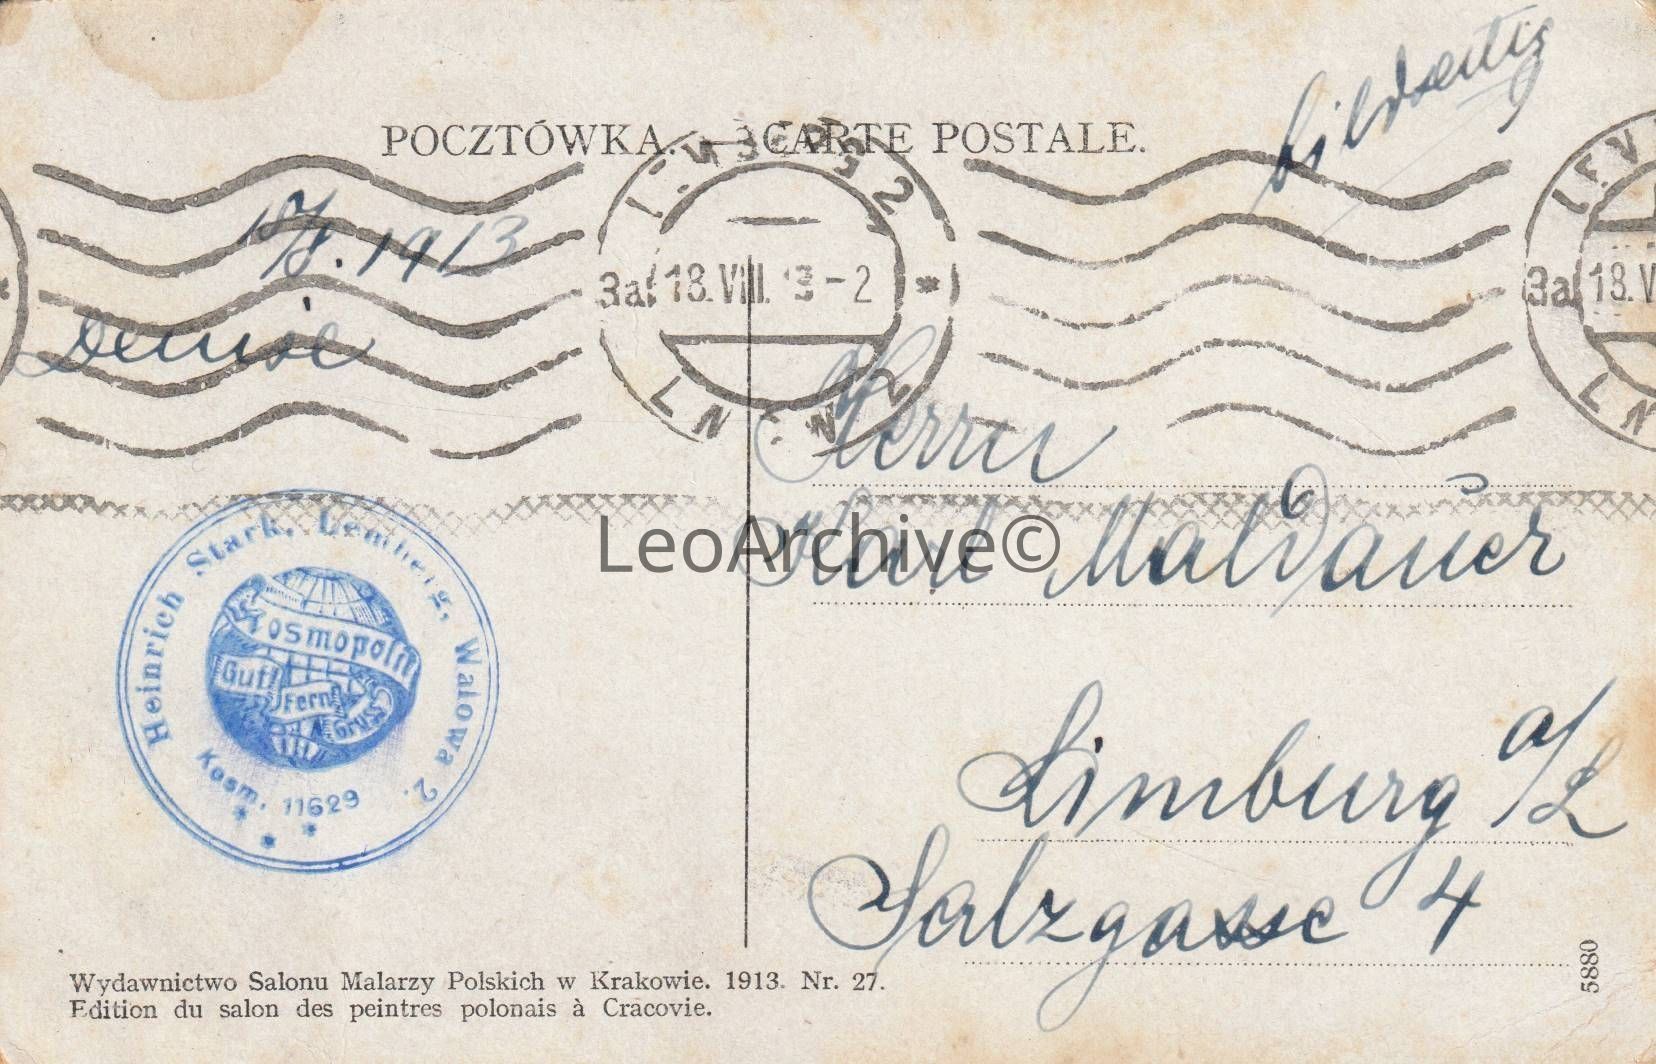 bildseitig
POCZTÓWKA. — CARTE POSTALE.
18/8. 1913
3a 18. VIII. 13-2
3a 18. V
Herrn
Karl Maldauer
LeoArchive©
Heinrich Stark, Lemberg, Walowa 2.
Kosmopolit
Gut!
Fern
Gruss
Kosm. 11629
Limburg a/L
Salzgasse 4
Wydawnictwo Salonu Malarzy Polskich w Krakowie. 1913. Nr. 27.
Edition du salon des peintres polonais à Cracovie.
5880